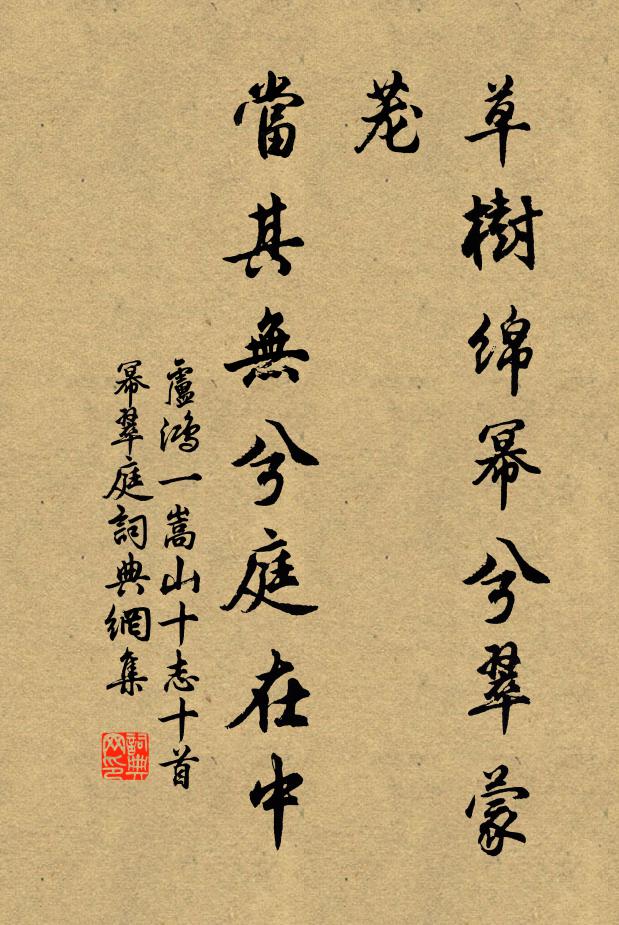 草樹綿幂兮翠蒙
茏
當其無兮庭在中
盧鴻一嵩山十志十首
幂翠庭詞典網集
詞典
网印